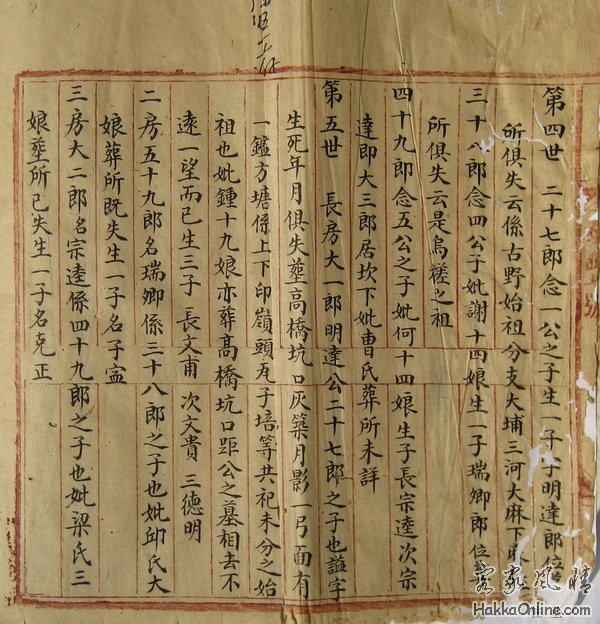 第四世 二十七郎念一公之子生一子字明達郎位
所俱失云係古野始祖分支大埔三河大麻下
三十八郎念四公子妣謝十四娘生一子瑞卿郎位
所俱失云是烏槎之祖
四十九郎念五公之子妣何十四娘生子長宗逵次宗
達即大三郎居坎下妣曹氏葬所未詳
第五世 長房大一郎明達公二十七郎之子也諡字
生死年月俱失塟高橋坑口灰築月影一弓面有
一鑑方塘係上下印嶺頭瓦子培等共祀未分之始
祖也妣鍾十九娘亦葬髙橋坑口距公之墓相去不
遠一望而已生三子長文甫 次文貴 三德明
二房五十九郎名瑞卿係三十八郎之子也妣邱氏大
娘葬所既失生一子名子寍
三房大二郎名宗逵係四十九郎之子也妣梁氏三
娘塟所已失生一子名克正
客家風情
HakkaOnline.com